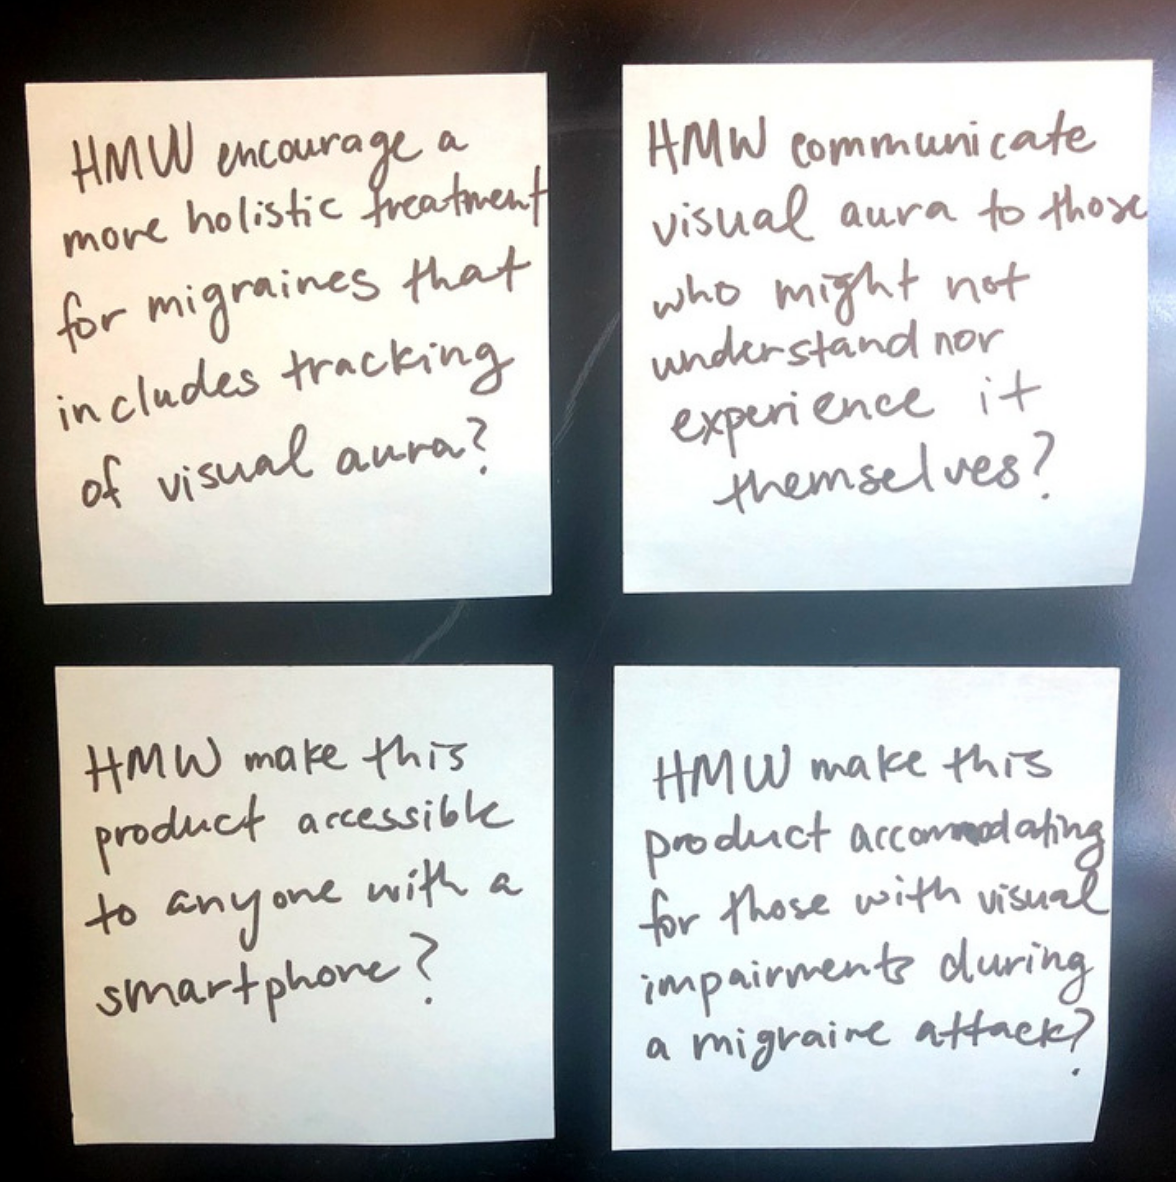 HMW encourage a
more holistic treatment
for migraines that
includes tracking
of visual aura?
HMW communicate
visual aura to those
who might not
understand nor
experience it
themselves?
HMW make this
product accessible
to anyone with a
smartphone?
HMW make this
product accommodating
for those with visual
impairments during
a migraine attack?